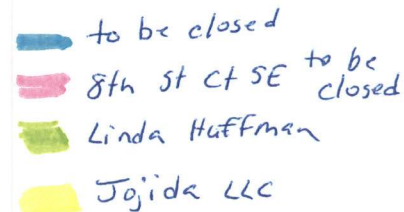 to be closed
8th St Ct SE to be closed
Linda Huffman
Jojida LLC